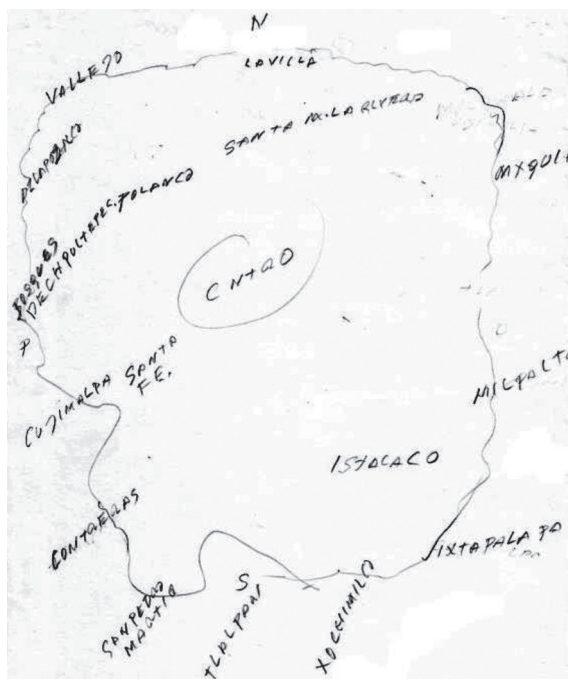 N
VALLEJO
LAVILLA
SANTA M. LA RIVERA
MIXQUI
DECHPULTEPEC. POLANCO
BOSQUES
CNTRO
P
O
CUJIMALPA SANTA
FE.
MILPALTA
ISTACACO
CONTRERAS
IXTAPALAPA
S
SANPEDRO
MARTIR
TLALPAN
XOCHIMILCO